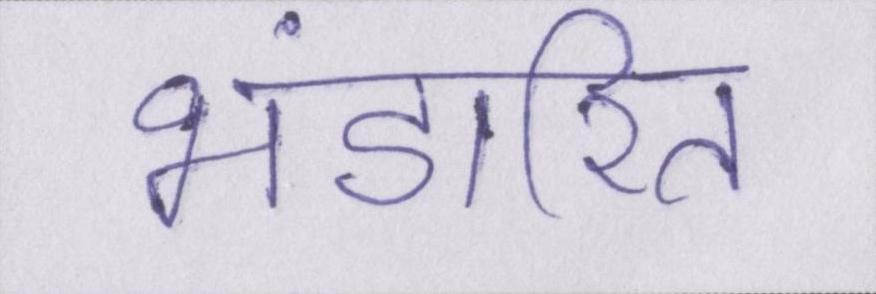 भंडारित